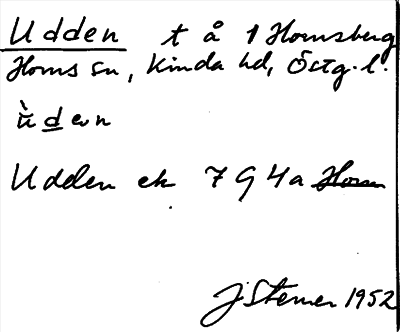 Udden t å 1 Hornsberg
Horns sn, Kinda hd, Östg. l.
ùdən
Udden ek 7 G 4a
J Sterner 1952